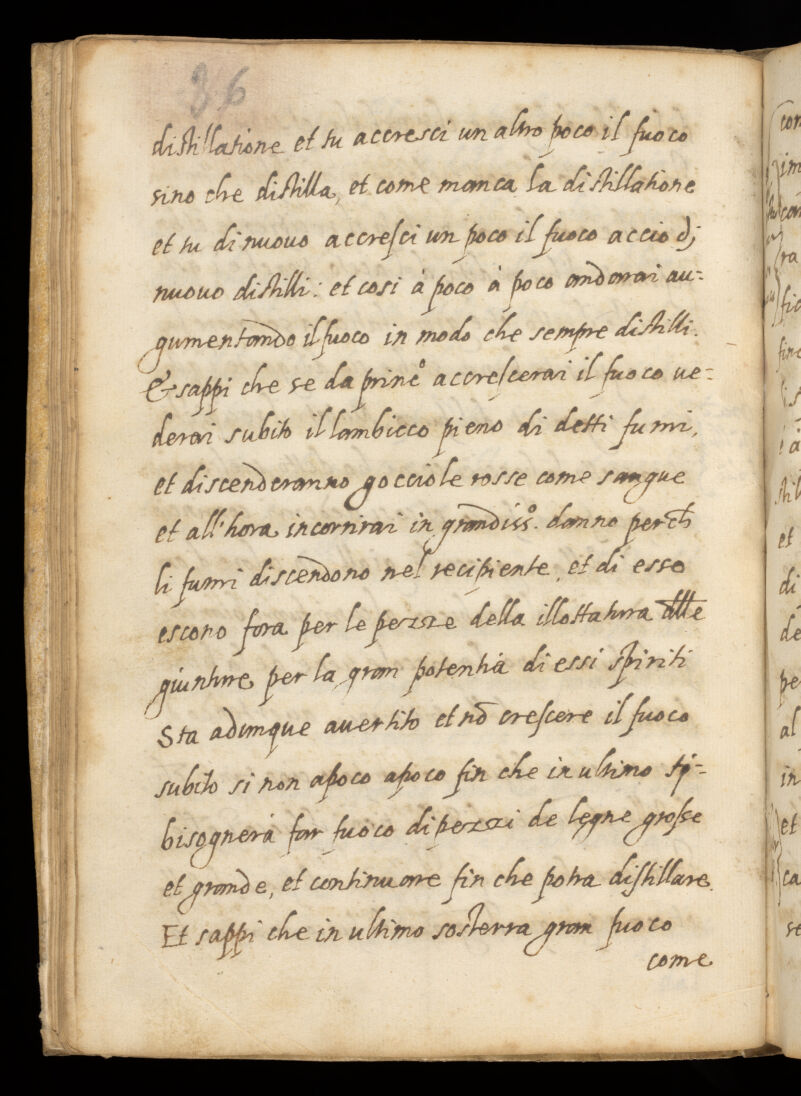 36
distillatione et tu accresci un altro poco il fuoco
sino che distilla, et come manca la distillatione
et tu di nuouo accresci un poco il fuoco accio dj
nuouo distilli: et cosi à poco à poco andarai au-
gumentando il fuoco in modo che sempre distilli.
& sappi che se da princ° accrescerai il fuoco ue-
derai subito il lambicco pieno di detti fumi,
et discenderanno gocciole rosse come sangue
et all'hora incorrirai in grandiss°. danno perch
li fumi discendono nel recipiente, et di esso
escono fora per le pezze della illottatura delle
giunture per la gran potentia di essi spiriti
Sta adunque auertito et nō crescere il fuoco
subito si non apoco apoco fin che in ultimo ti-
bisognerà far fuoco di pezzi de legne grosse
et grande, et continuare fin che potra distillare.
Et sappi che in ultimo sosterra gran fuoco
come
con
im
con
ra
fic
et
di
de
pe
al
in
et
ca
se